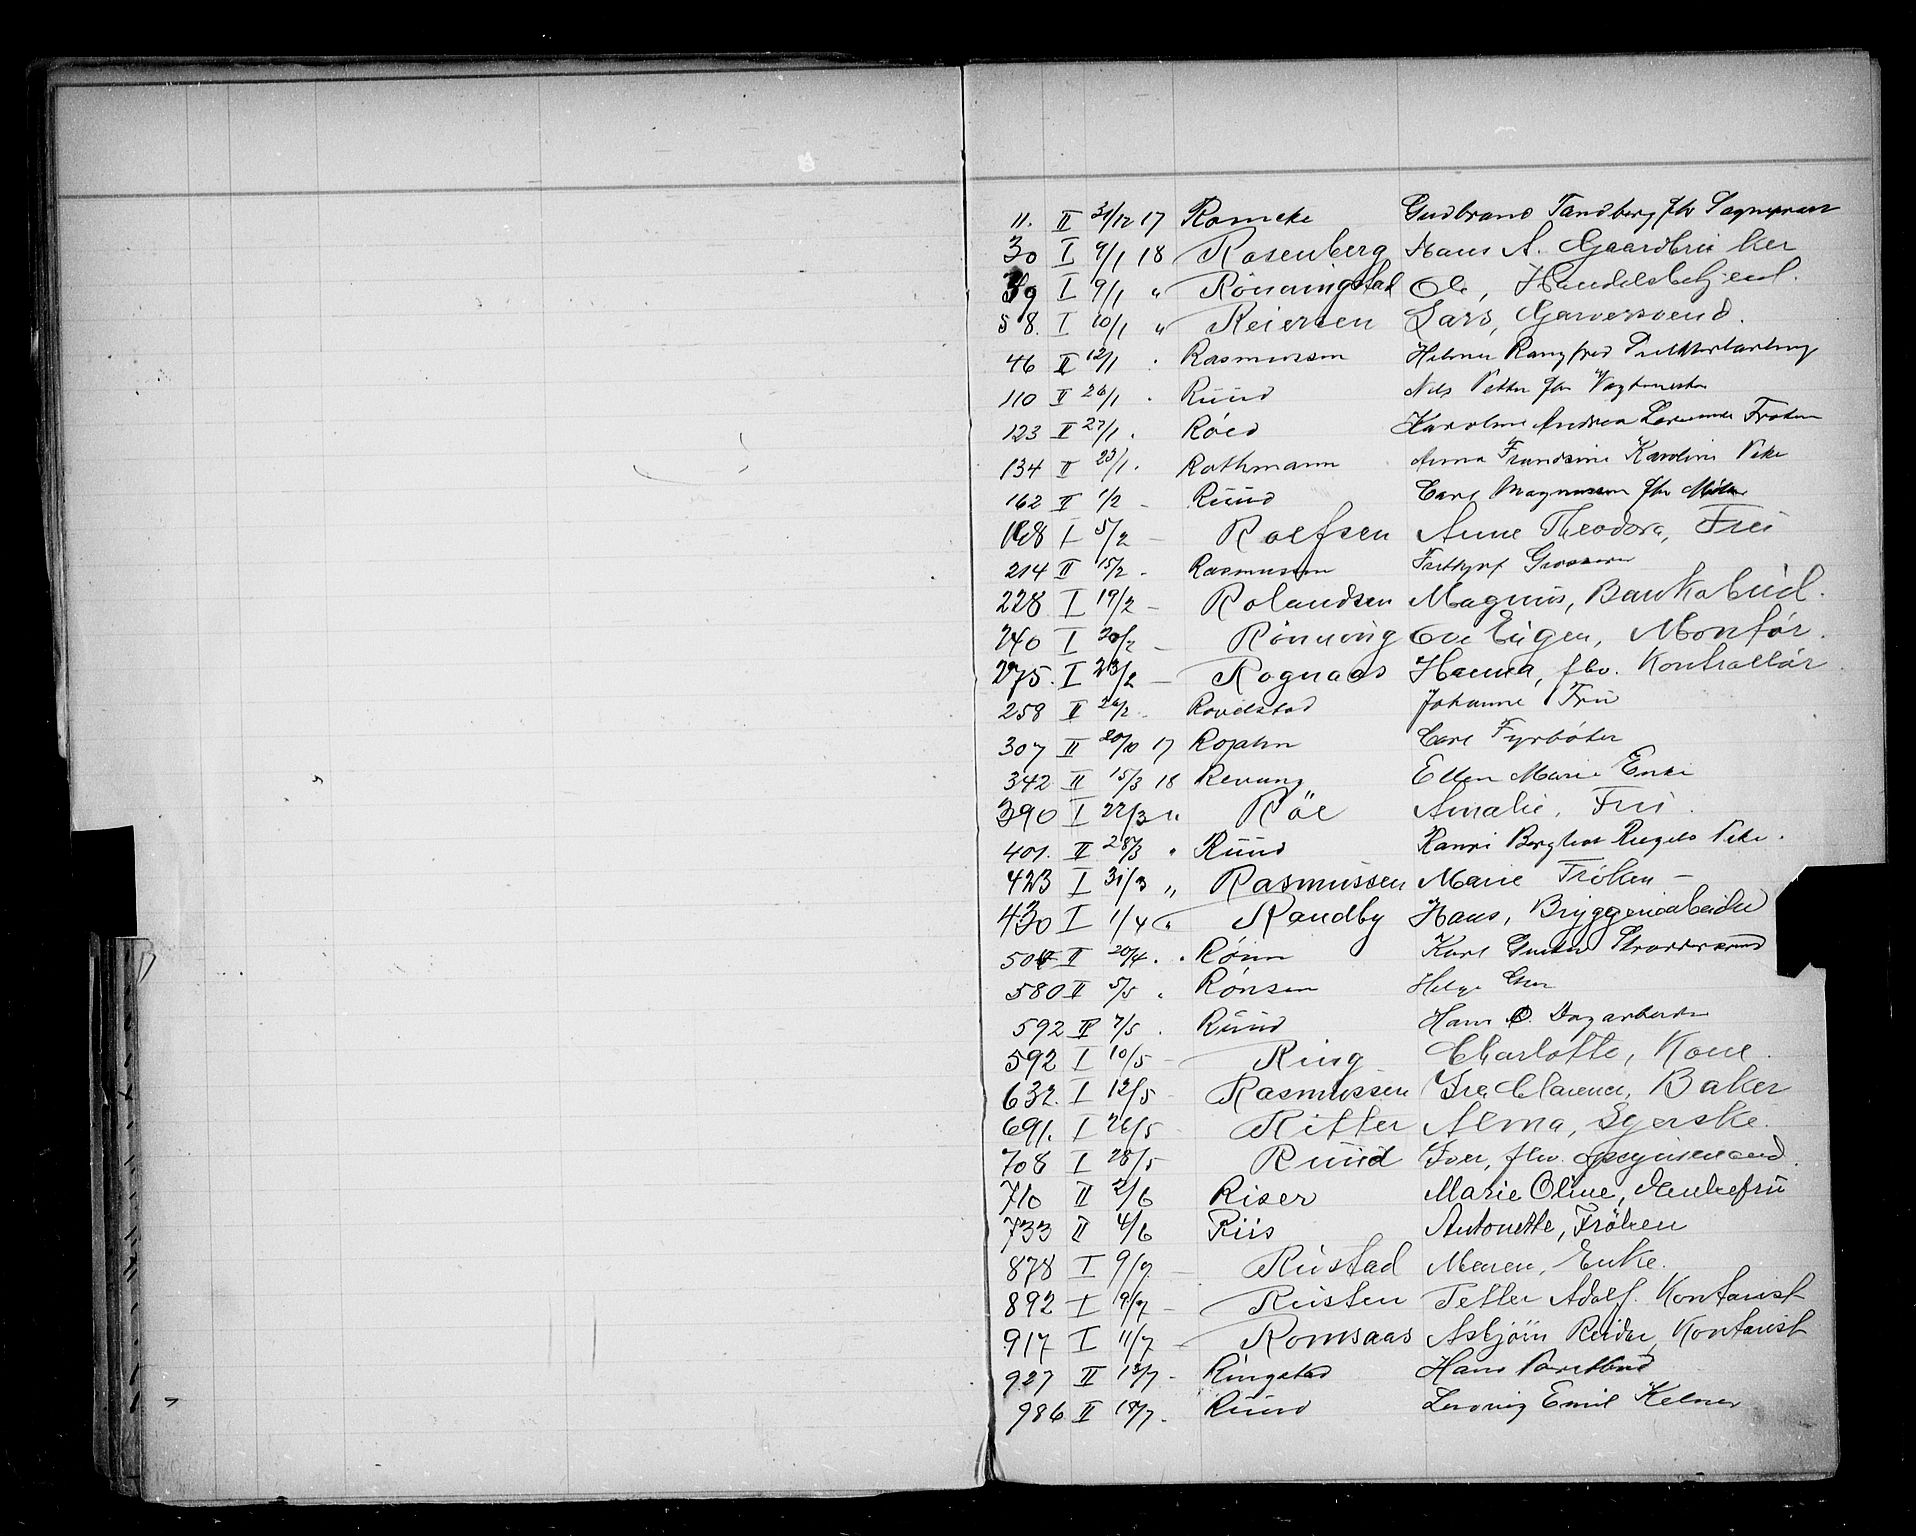 11. II 31/12 17 Romcke Gudbrand Tandberg fhv Sogneprest
30 I 9/1 18 Rosenberg Hans A. Gaardbruker
39 I 9/1 " Rönningstad Ole, Handelsbetjent.
58. I 10/1 " Reiersen Lars, Garversvend.
46 II 12/1 . Rasmussen Helmer
110 II 26/1 . Ruud Nils Petter fhv Vagtmester
123 II 27/1 . Röed Karoline Andrea Frøken
134 II 23/1 . Rothmann Anna Frandsine Karoline Pike
162 II 1/2 - Ruud Carl Magnussen fhv
168 I 5/2 - Rolfsen Anne Theodora, Frü
214 II 15/2 - Rasmussen Grosserer
228 I 19/2 - Rolandsen Magnus, Bankobud.
240 I 20/2 - Rönning Ole Eugen, Montör.
275. I 23/2 - Rognaas Hanna, fhv. Kontrollör.
258 II 26/2 - Roverstad Johanne Frü
307 II 20/10 17 Rojahn Carl Fyrböter
342 II 15/3 18 Revang Ellen Marie Enke
390 I 22/3 " Röe Amalie, Frü.
401. II 28/3 " Ruud Ranvi Borghot Pike.
423 I 31/3 " Rasmussen Marie Fröken -
430 I 1/4 " Randby Hans, Bryggeriarbeider
504 II 20/4 . . Rönn Karl Gustav Skreddersvend
580 II 5/5 " Rönsen Helge
592 II 7/5 . Ruud Hans O. Dagarbeider
592 I 10/5 - Ring Charlotte, Kone.
632. I 12/5 - Rasmussen Ire Clarence, Baker
691. I 26/5 - Ritter Alma, Syerske.
708 I 28/5 - Ruud Iver, fhv.
710 II 2/6 Riser Marie Oline, Enkefrü
733 II 4/6 Riis Antonette, Fröken
878 I 9/7 - Rustad Maren, Enke.
892 I 9/7 - Rusten Petter Adolf. Kontorist
917 I 11/7 - Romsaas Asbjörn Reidar, Kontorist
927 II 13/7 - Ringstad Hans Postbud
986 II 18/7. Ruud Ludvig Emil Kelner